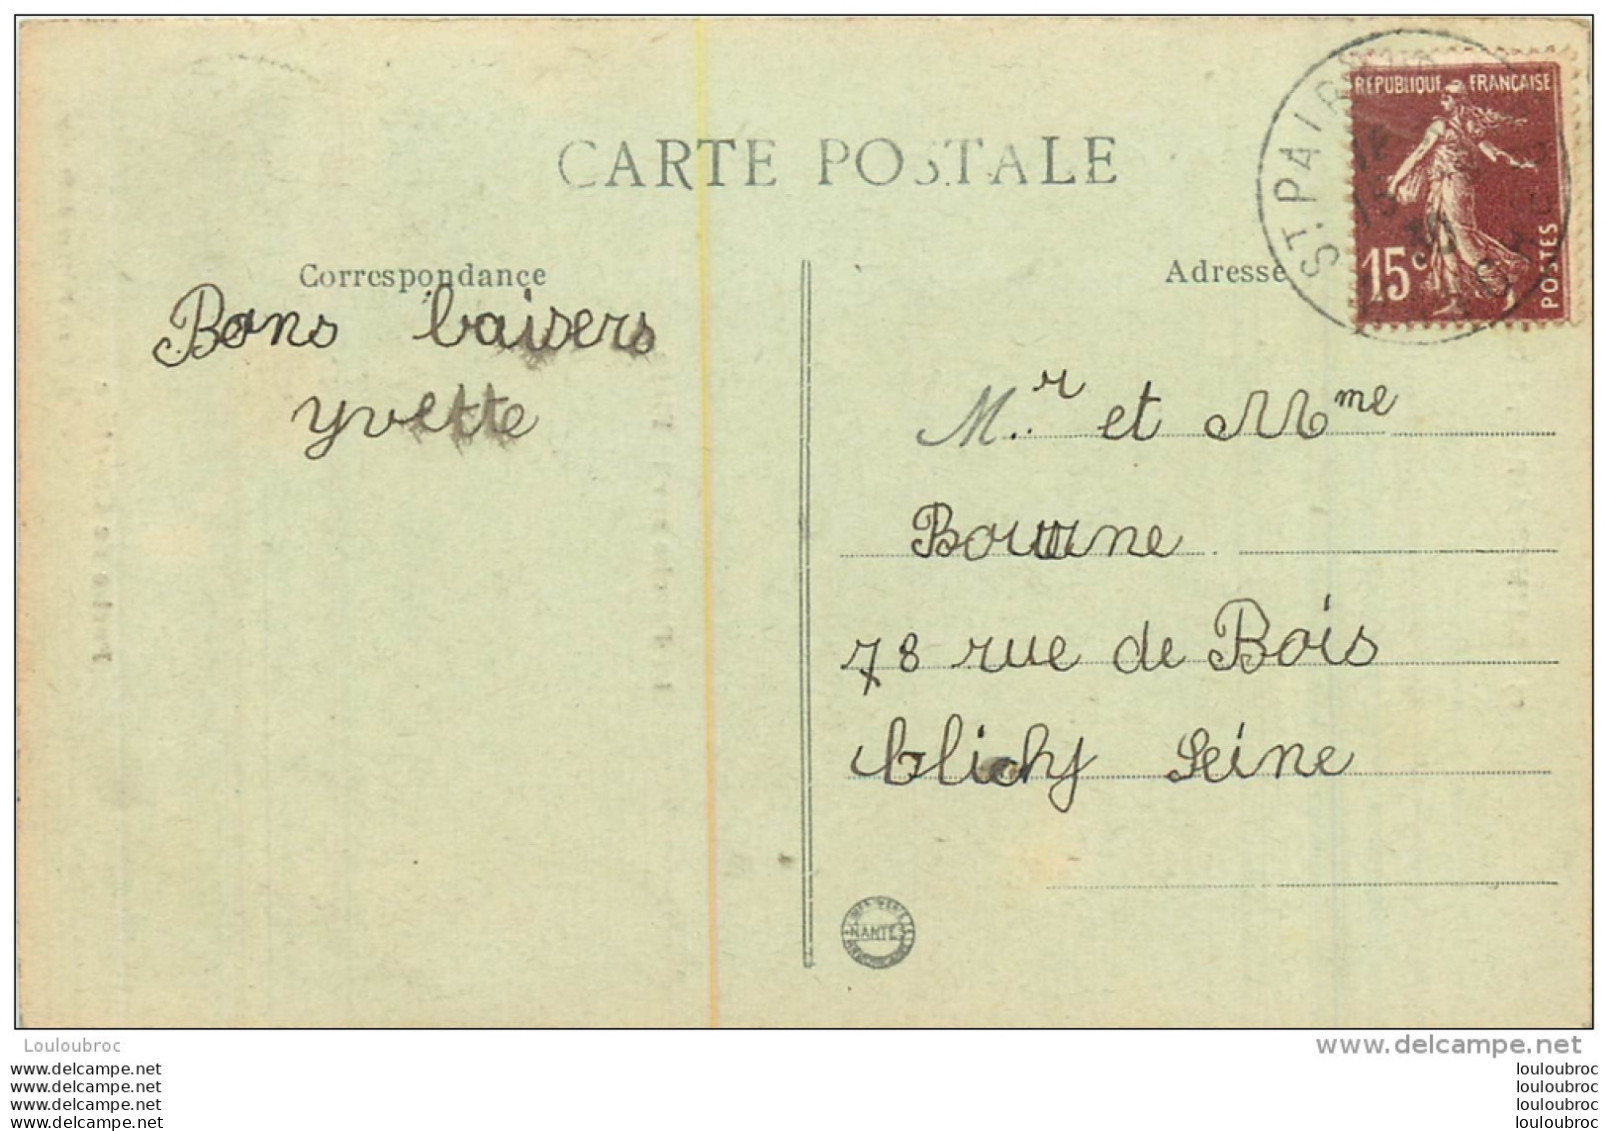 CARTE POSTALE
Correspondance
Adresse
RÉPUBLIQUE FRANÇAISE
15c
POSTES
ST. PAIR
30
Bons baisers
yvette
Mr. et Mme
Bourne
78 rue de Bois
Clichy Seine
NANTES
Louloubroc
www.delcampe.net
www.delcampe.net
www.delcampe.net
www.delcampe.net
www.delcampe.net
louloubroc
louloubroc
louloubroc
louloubroc